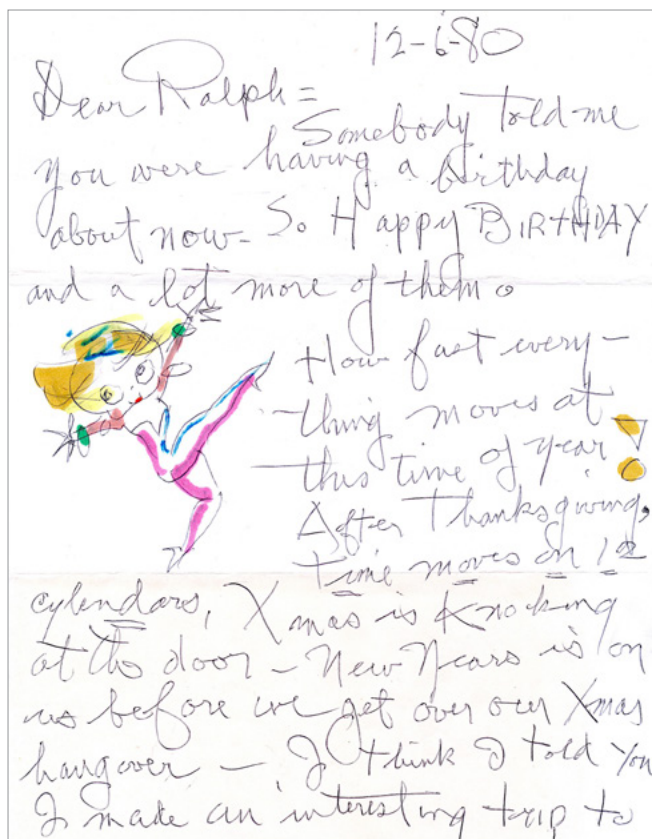 12-6-80
Dear Ralph =
Somebody told me
you were having a birthday
about now - So Happy BIRTHDAY
and a lot more of them.
How fast every-
thing moves at
this time of year!
After Thanksgiving,
time moves on 12
cylendars, Xmas is Knocking
at the door - New Years is on
us before we get over our Xmas
hangover - I think I told you
I made an interesting trip to